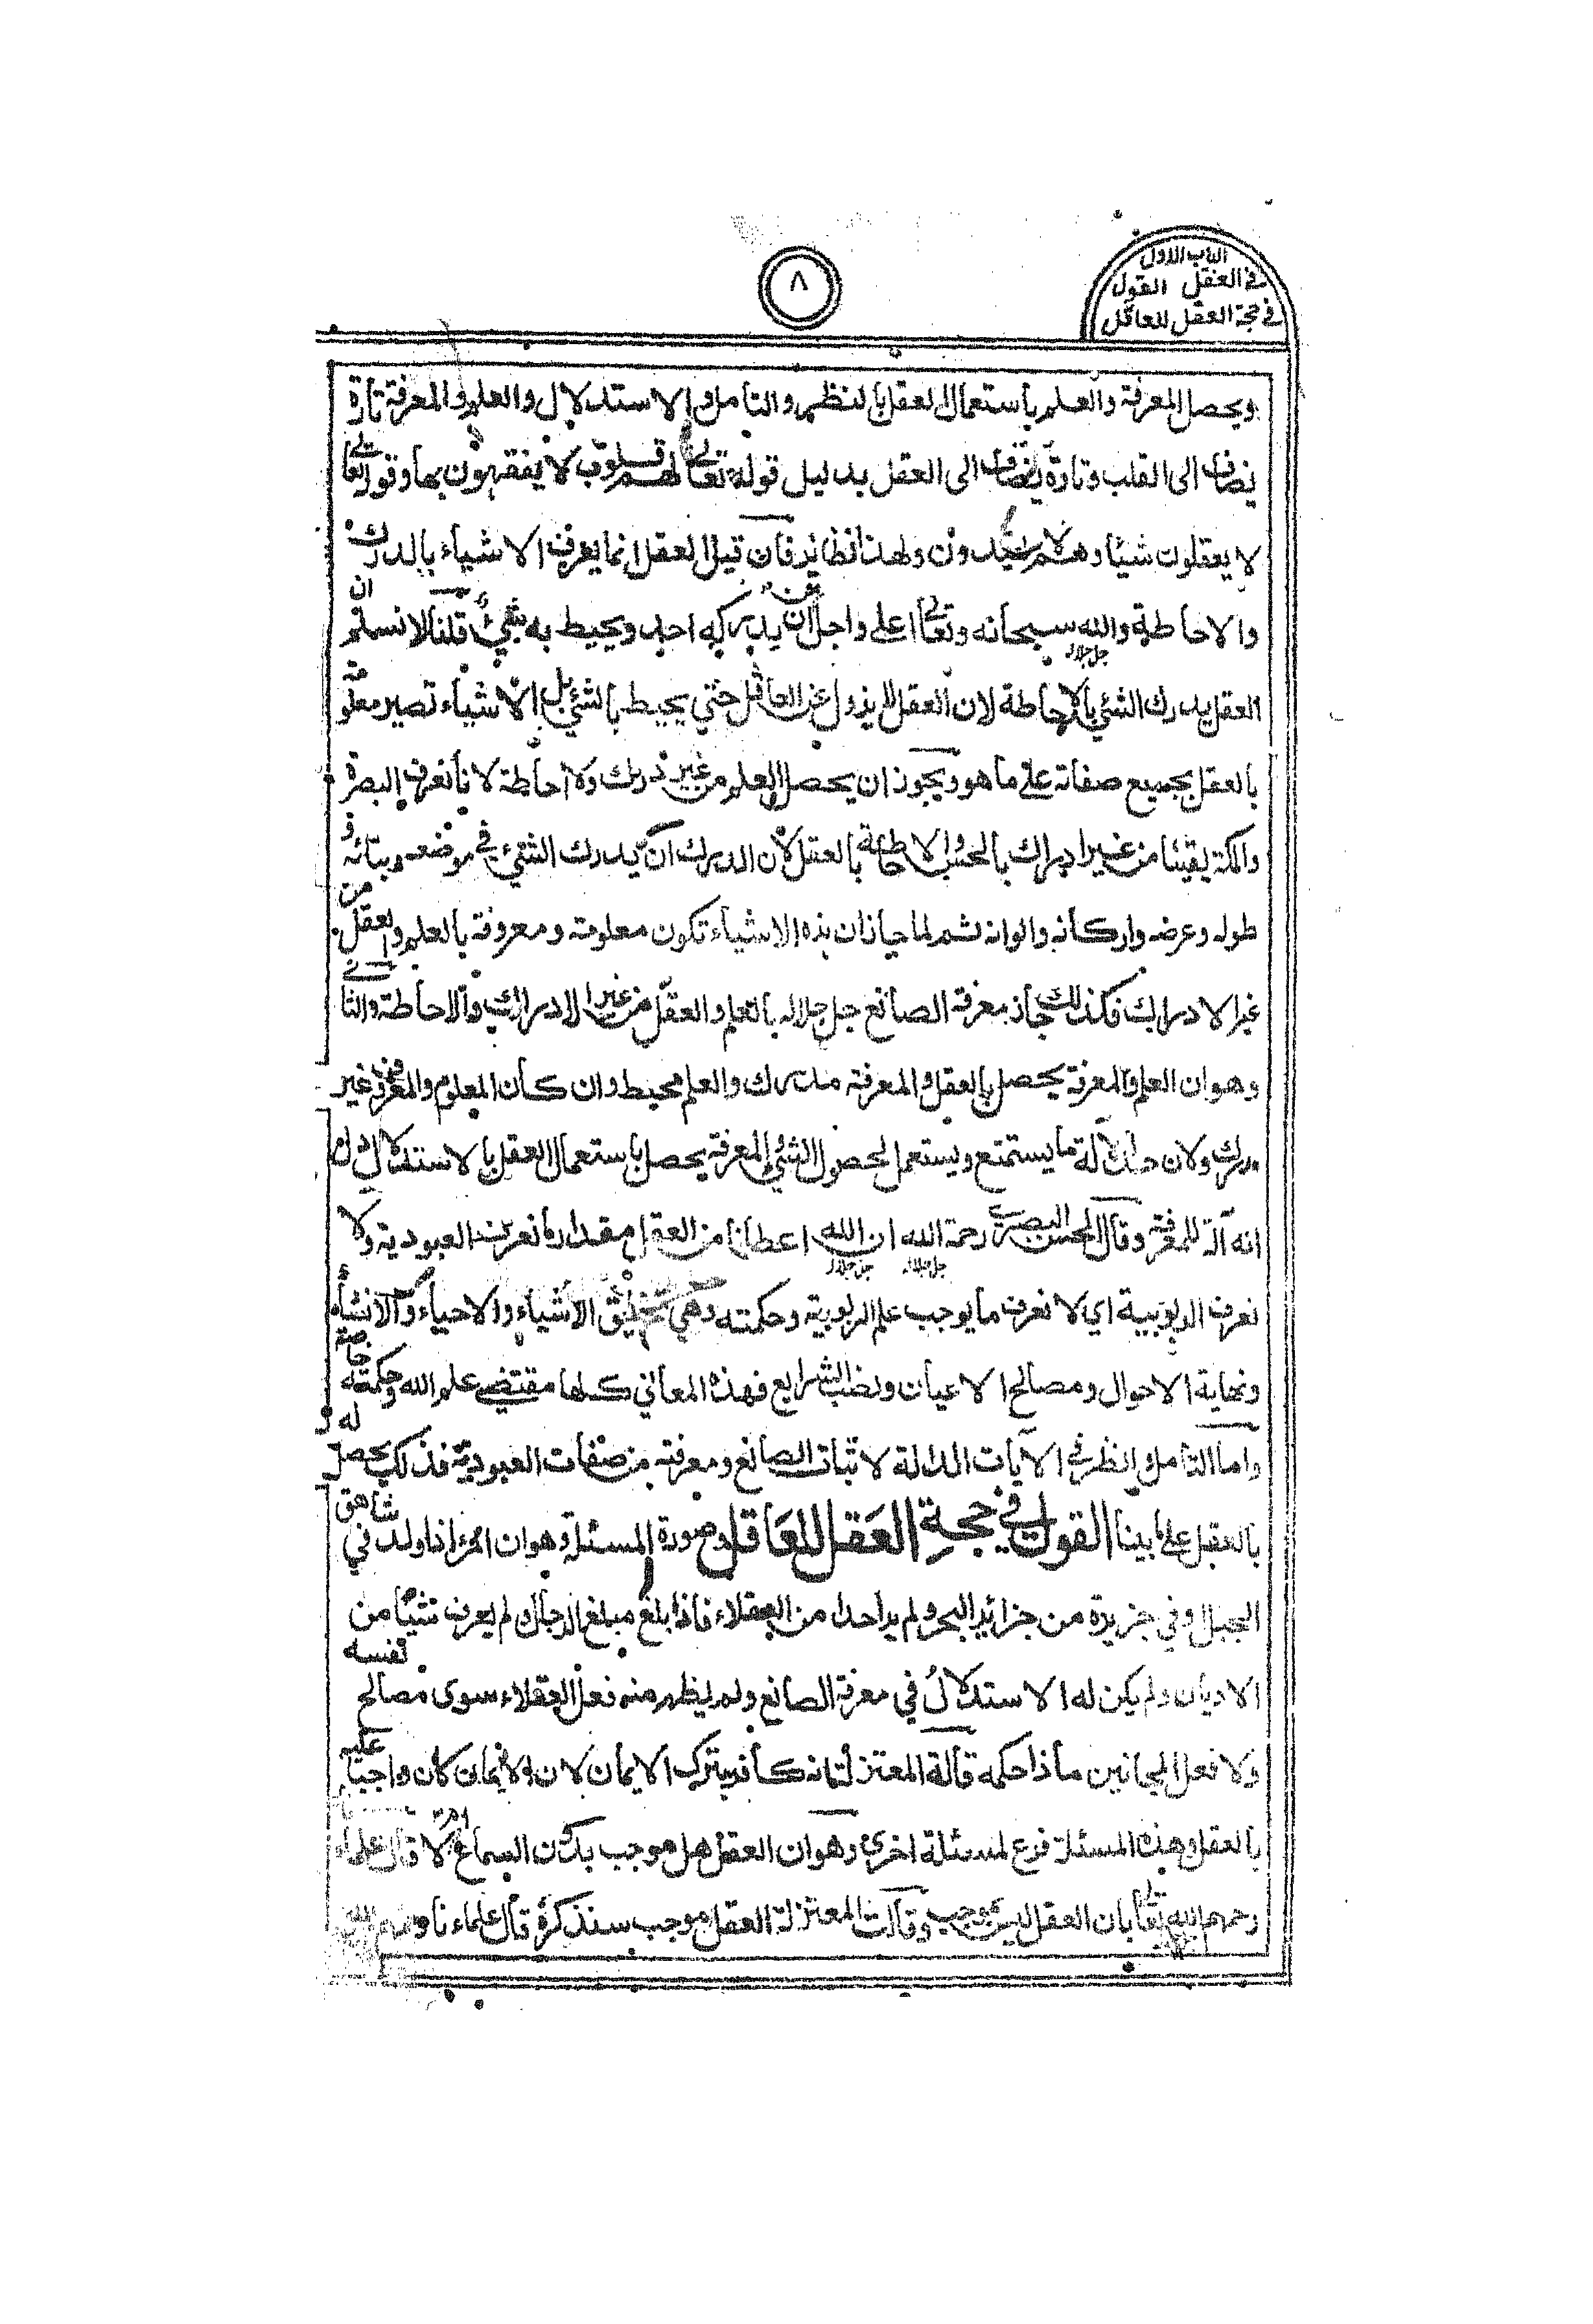 الباب الاول
في العقل القول
في حجة العقل للعاقل
٨
ويحصل المعرفة والعلم باستعمال العقل بالنظر والتامل والاستدلال والعلم والمعرفة تارة
يضاف الى القلب وتارة يضاف الى العقل بدليل قوله تعالى لهم قلوب لا يفقهون بها وقوله تعالى
لا يعقلون شيئا وهم لا يهتدون ولهذا نظائر فان قيل العقل انما يعرف الاشياء بالدرك
والاحاطة والله سبحانه وتعالى اعلى واجل من ان يدركه احد ويحيط به شيء قلنا لا نسلم ان
العقل يدرك الشئ بالاحاطة لان العقل لا يزول عن العاقل حتى يحيط بالشئ بل الاشياء تصير معلومة
بالعقل بجميع صفاته على ما هو ويجوز ان يحصل العلم من غير درك ولا احاطة لانا نعرف البصرة
والمكة يقينا من غير ادراك بالحس والاحاطة بالعقل لان الدرك ان يدرك الشئ في موضعه وبنائه و
طوله وعرضه واركانه والوانه ثم لما جاز ان هذه الاشياء تكون معلومة ومعروفة بالعلم والعقل من
غير الادراك فكذلك جاز معرفة الصانع جل جلاله بالعلم والعقل من غير الادراك والاحاطة والثاني
وهو ان العلم والمعرفة يحصل بالعقل والمعرفة مدرك والعلم محيط وان كان المعلوم والمعروف غير
مدرك ولان حد الآلة ما يستمتع ويستعمل لحصول الشئ والمعرفة يحصل باستعمال العقل بالاستقلال دل
انه آلة للمعرفة وقال الحسن البصري رحمة الله ان الله جل جلاله اعطانا من العقل مقدار ما نعرف العبودية ولا
نعرف الربوبية اي لا نعرف ما يوجب علم الربوبية وحكمته وهي تخليق الاشياء والاحياء والانشاء
ونهاية الاحوال ومصالح الاعيان ونصب الشرايع فهذه المعاني كلها مقتضى علم الله وحكمته خاصة له
واما التامل والنظر في الآيات الدالة لاثبات الصانع ومعرفته من صفات العبودية فذلك يحصل
بالعقل على ما بينا القول في حجة العقل للعاقل وصورة المسئلة وهو ان المرء اذا ولد في شاهق
الجبل وفي جزيرة من جزائر البحر ولم ير احدا من العقلاء فاذا بلغ مبلغ الرجال ولم يعرف شيئا من
الاديان ولم يكن له الاستدلال في معرفة الصانع ولم يظهر منه فعل العقلاء سوى مصالح نفسه
ولا فعل المجانين ماذا حكمه قالة المعتزلة انه كافر بترك الايمان لان الايمان كان واجبا عليه
بالعقل وهذه المسئلة فرع لمسئلة اخرى وهو ان العقل هل موجب بدون السماع ام لا قال علماءنا
رحمهم الله تعالى بان العقل ليس بموجب وقالت المعتزلة العقل موجب سنذكره قال علماءنا رحمهم الله